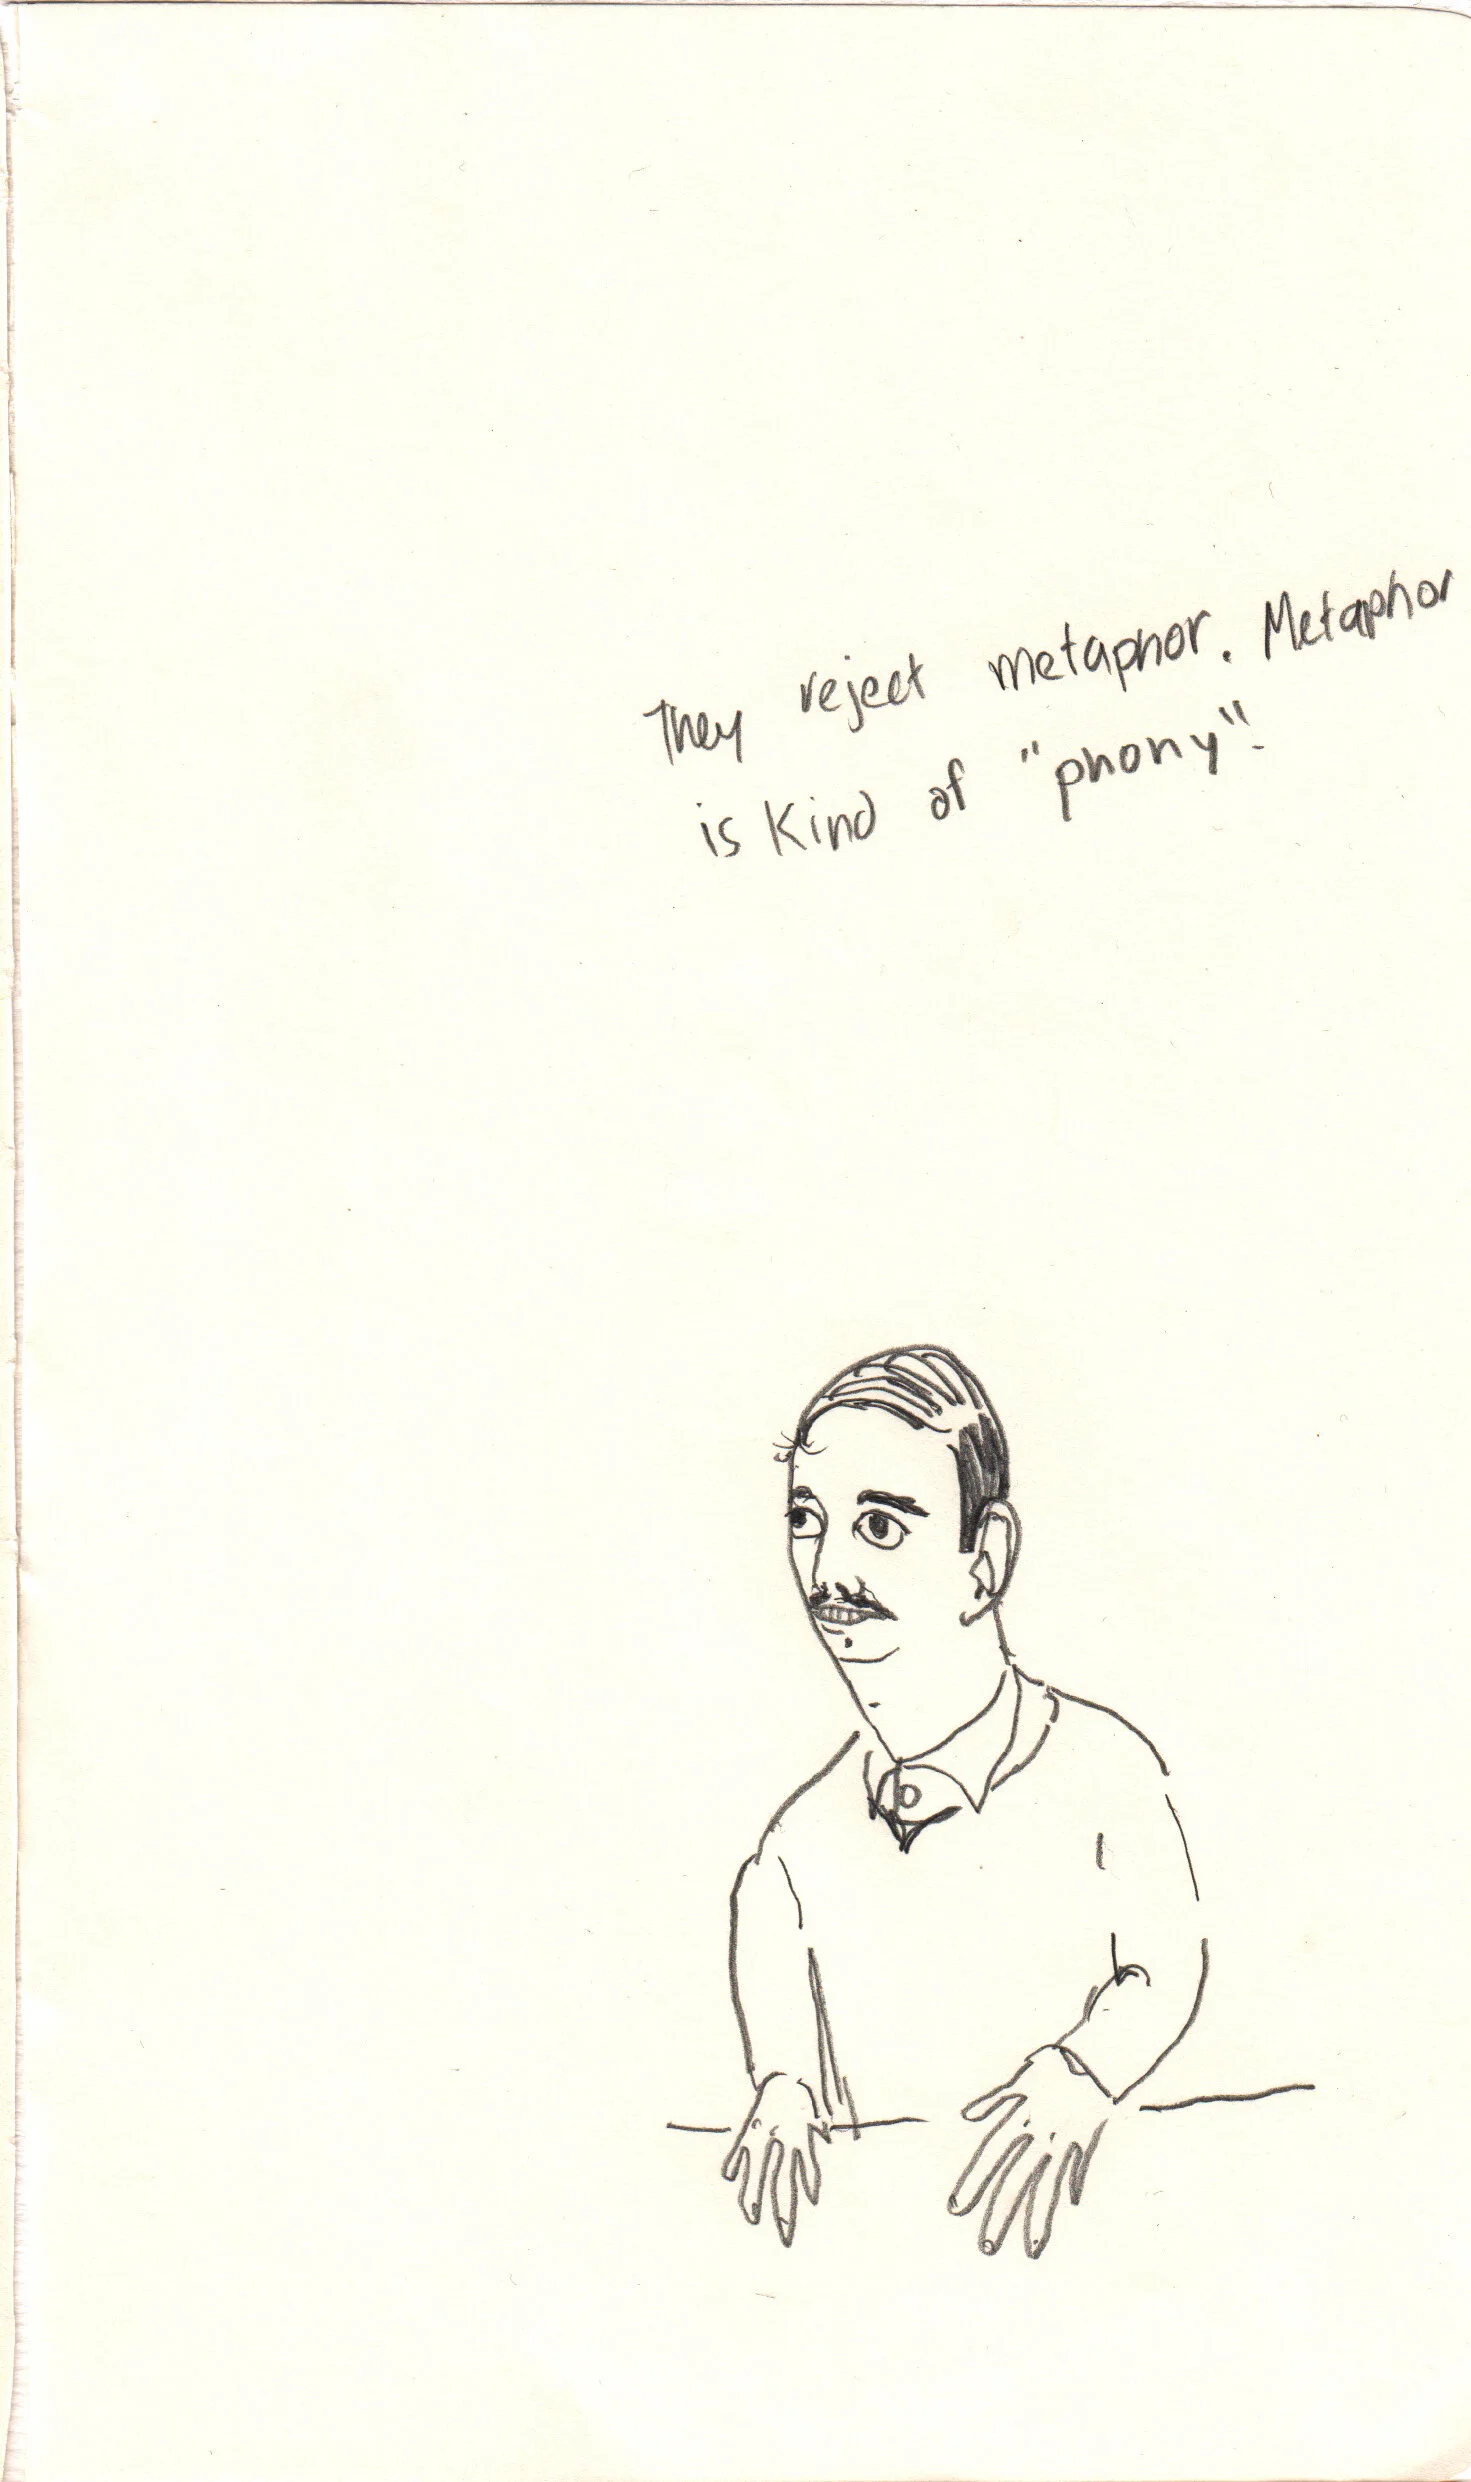 They reject metaphor. Metaphor
is kind of "phony".